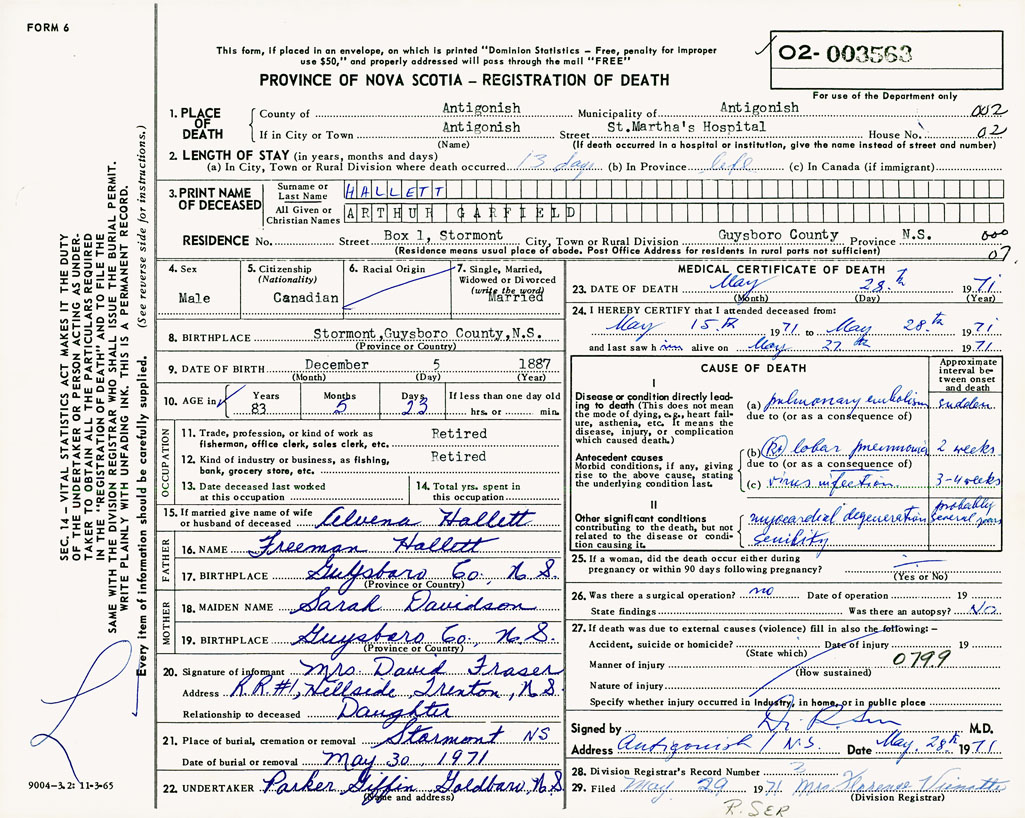 FORM 6
This form, if placed in an envelope, on which is printed "Dominion Statistics – Free, penalty for improper
use $50," and properly addressed will pass through the mail "FREE"
PROVINCE OF NOVA SCOTIA – REGISTRATION OF DEATH
02- 003563
For use of the Department only
1. PLACE OF DEATH
County of Antigonish Municipality of Antigonish 002
If in City or Town Antigonish Street St.Martha's Hospital House No. 02
(Name) (If death occurred in a hospital or institution, give the name instead of street and number)
2. LENGTH OF STAY (in years, months and days)
(a) In City, Town or Rural Division where death occurred 13 day (b) In Province life (c) In Canada (if immigrant)
3. PRINT NAME OF DECEASED
Surname or Last Name HALLETT
All Given or Christian Names ARTHUR GARFIELD
RESIDENCE No. Street Box 1, Stormont City, Town or Rural Division Guysboro County Province N.S. 000
(Residence means usual place of abode. Post Office Address for residents in rural parts not sufficient) 07
4. Sex
Male
5. Citizenship
(Nationality)
Canadian
6. Racial Origin
7. Single, Married,
Widowed or Divorced
(write the word)
Married
8. BIRTHPLACE Stormont,Guysboro County,N.S.
(Province or Country)
9. DATE OF BIRTH December 5 1887
(Month) (Day) (Year)
10. AGE in Years Months Days If less than one day old
83 5 23 hrs. or min.
OCCUPATION
11. Trade, profession, or kind of work as
fisherman, office clerk, sales clerk, etc. Retired
12. Kind of industry or business, as fishing,
bank, grocery store, etc. Retired
13. Date deceased last worked
at this occupation
14. Total yrs. spent in
this occupation
15. If married give name of wife
or husband of deceased Alvena Hallett
FATHER
16. NAME Freeman Hallett
17. BIRTHPLACE Guysboro Co., N.S.
(Province or Country)
MOTHER
18. MAIDEN NAME Sarah Davidson
19. BIRTHPLACE Guysboro Co. N.S.
(Province or Country)
20. Signature of informant Mrs. David Fraser
Address R.R.#1, Hillside, Trenton, N.S.
Relationship to deceased Daughter
21. Place of burial, cremation or removal Stormont NS
Date of burial or removal May 30, 1971
22. UNDERTAKER Parker Giffin Goldboro, N.S.
(Name and address)
MEDICAL CERTIFICATE OF DEATH
23. DATE OF DEATH May 28th 1971
(Month) (Day) (Year)
24. I HEREBY CERTIFY that I attended deceased from:
May 15th 1971 to May 28th 1971
and last saw him alive on May 27th 1971
CAUSE OF DEATH
Approximate interval between onset and death
I
Disease or condition directly leading to death (This does not mean the mode of dying, e.g., heart failure, asthenia, etc. It means the disease, injury, or complication which caused death.)
(a) pulmonary embolism sudden
due to (or as a consequence of)
Antecedent causes
Morbid conditions, if any, giving rise to the above cause, stating the underlying condition last.
(b) (R) lobar pneumonia 2 weeks
due to (or as a consequence of)
(c) virus infection 3-4 weeks
II
Other significant conditions contributing to the death, but not related to the disease or condition causing it.
myocardial degeneration probably several years
senility
25. If a woman, did the death occur either during
pregnancy or within 90 days following pregnancy?
(Yes or No)
26. Was there a surgical operation? no Date of operation 19
State findings Was there an autopsy? No
27. If death was due to external causes (violence) fill in also the following: –
Accident, suicide or homicide? Date of injury 19
(State which)
Manner of injury 0799
(How sustained)
Nature of injury
Specify whether injury occurred in Industry, in home, or in public place
Signed by M.D.
Address Antigonish N.S. Date May. 28th 1971
28. Division Registrar's Record Number
29. Filed May 29 1971 Mrs Florence
(Division Registrar)
R. SER
SEC. 14 – VITAL STATISTICS ACT MAKES IT THE DUTY
OF THE UNDERTAKER OR PERSON ACTING AS UNDER-
TAKER TO OBTAIN ALL THE PARTICULARS REQUIRED
IN THE "REGISTRATION OF DEATH" AND TO FILE THE
SAME WITH THE DIVISION REGISTRAR WHO SHALL ISSUE THE BURIAL PERMIT.
WRITE PLAINLY WITH UNFADING INK. THIS IS A PERMANENT RECORD.
Every item of information should be carefully supplied. (See reverse side for instructions.)
9004-3.2: 11-3-65